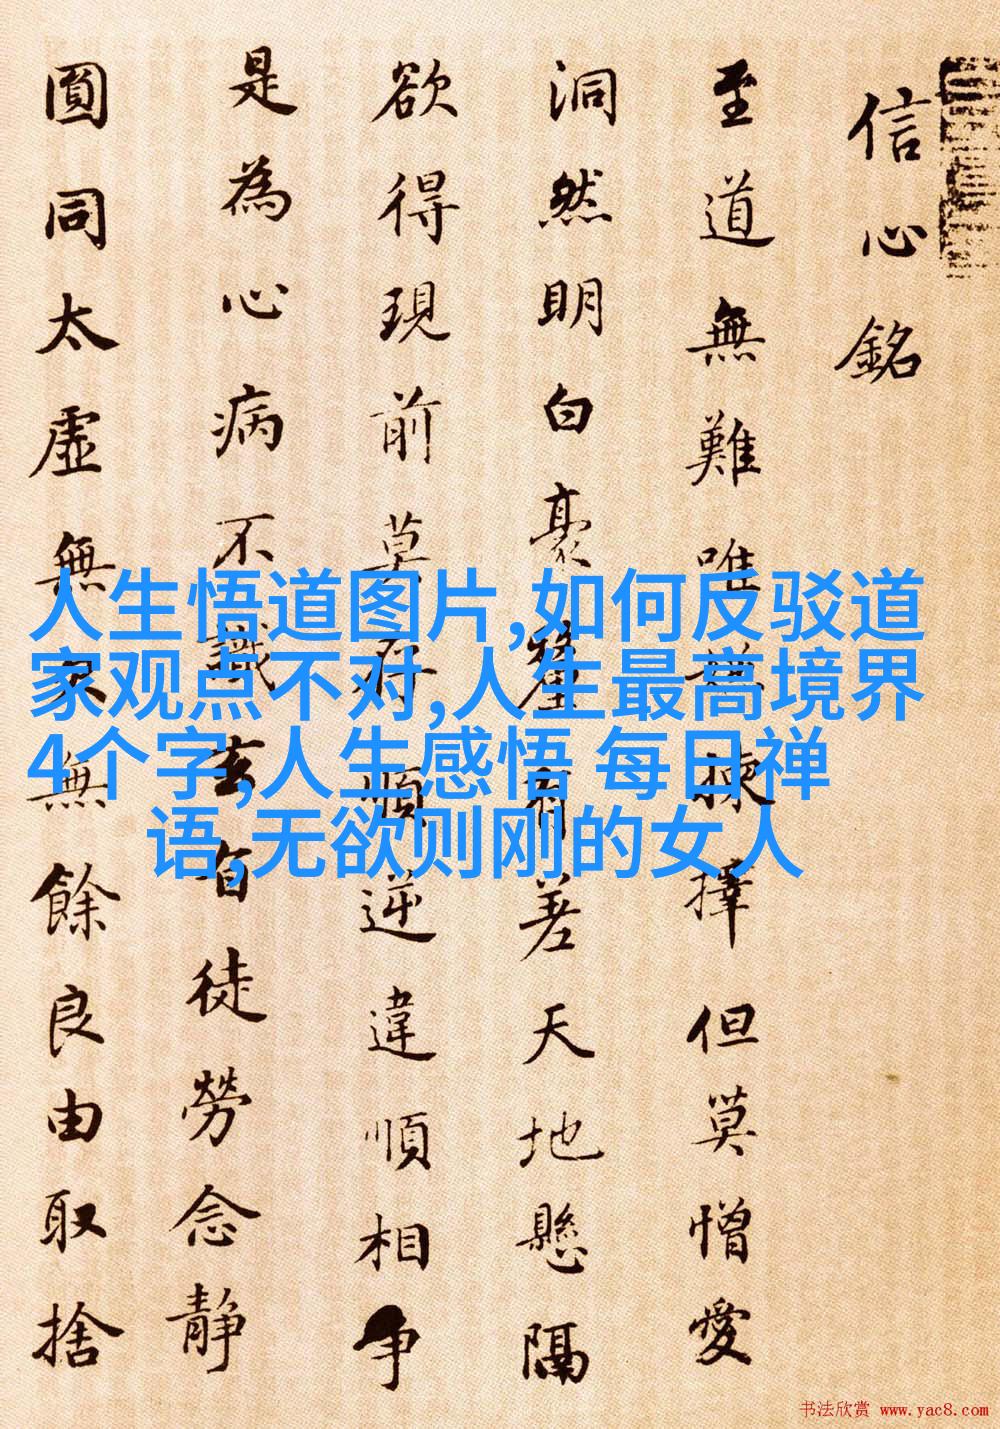 信心銘
至道無難唯嫌揀擇但莫憎愛
洞然明白豪釐有差天地懸隔
欲得現前莫存順逆違順相争
是為心病不識玄旨徒勞念静
圓同太虛無欠無餘良由取捨
人生悟道图片,如何反驳道
家观点不对,人生最高境界
4个字,人生感悟 每日禅
语,无欲则刚的女人
书法欣赏 www.yac8.com